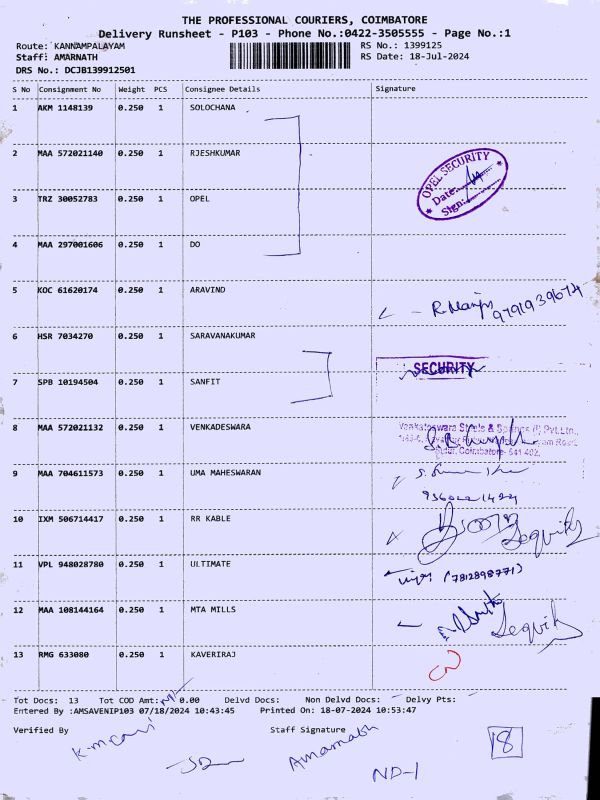 THE PROFESSIONAL COURIERS, COIMBATORE
Delivery Runsheet - P103 - Phone No.:0422-3505555 - Page No.:1
Route: KANNAMPALAYAM RS No.: 1399125
Staff: AMARNATH RS Date: 18-Jul-2024
DRS No.: DCJB139912501
S No Consignment No Weight PCS Consignee Details Signature
1 AKM 1148139 0.250 1 SOLOCHANA
2 MAA 572021140 0.250 1 RJESHKUMAR
OPEL SECURITY
Date:
Sign:
3 TRZ 30052783 0.250 1 OPEL
4 MAA 297001606 0.250 1 DO
5 KOC 61620174 0.250 1 ARAVIND
6 HSR 7034270 0.250 1 SARAVANAKUMAR
SECURITY
7 SPB 10194504 0.250 1 SANFIT
8 MAA 572021132 0.250 1 VENKADESWARA
Venkateswara Steels & Springs (I) Pvt.Ltd.,
Coimbatore- 641 402.
9 MAA 704611573 0.250 1 UMA MAHESWARAN
10 IXM 506714417 0.250 1 RR KABLE
11 VPL 948028780 0.250 1 ULTIMATE
(7812898771)
12 MAA 108144164 0.250 1 MTA MILLS
13 RMG 633080 0.250 1 KAVERIRAJ
Tot Docs: 13 Tot COD Amt: 0.00 Delvd Docs: Non Delvd Docs: Delvy Pts:
Entered By :AMSAVENIP103 07/18/2024 10:43:45 Printed On: 18-07-2024 10:53:47
Verified By Staff Signature
Amarnath
18
ND-1